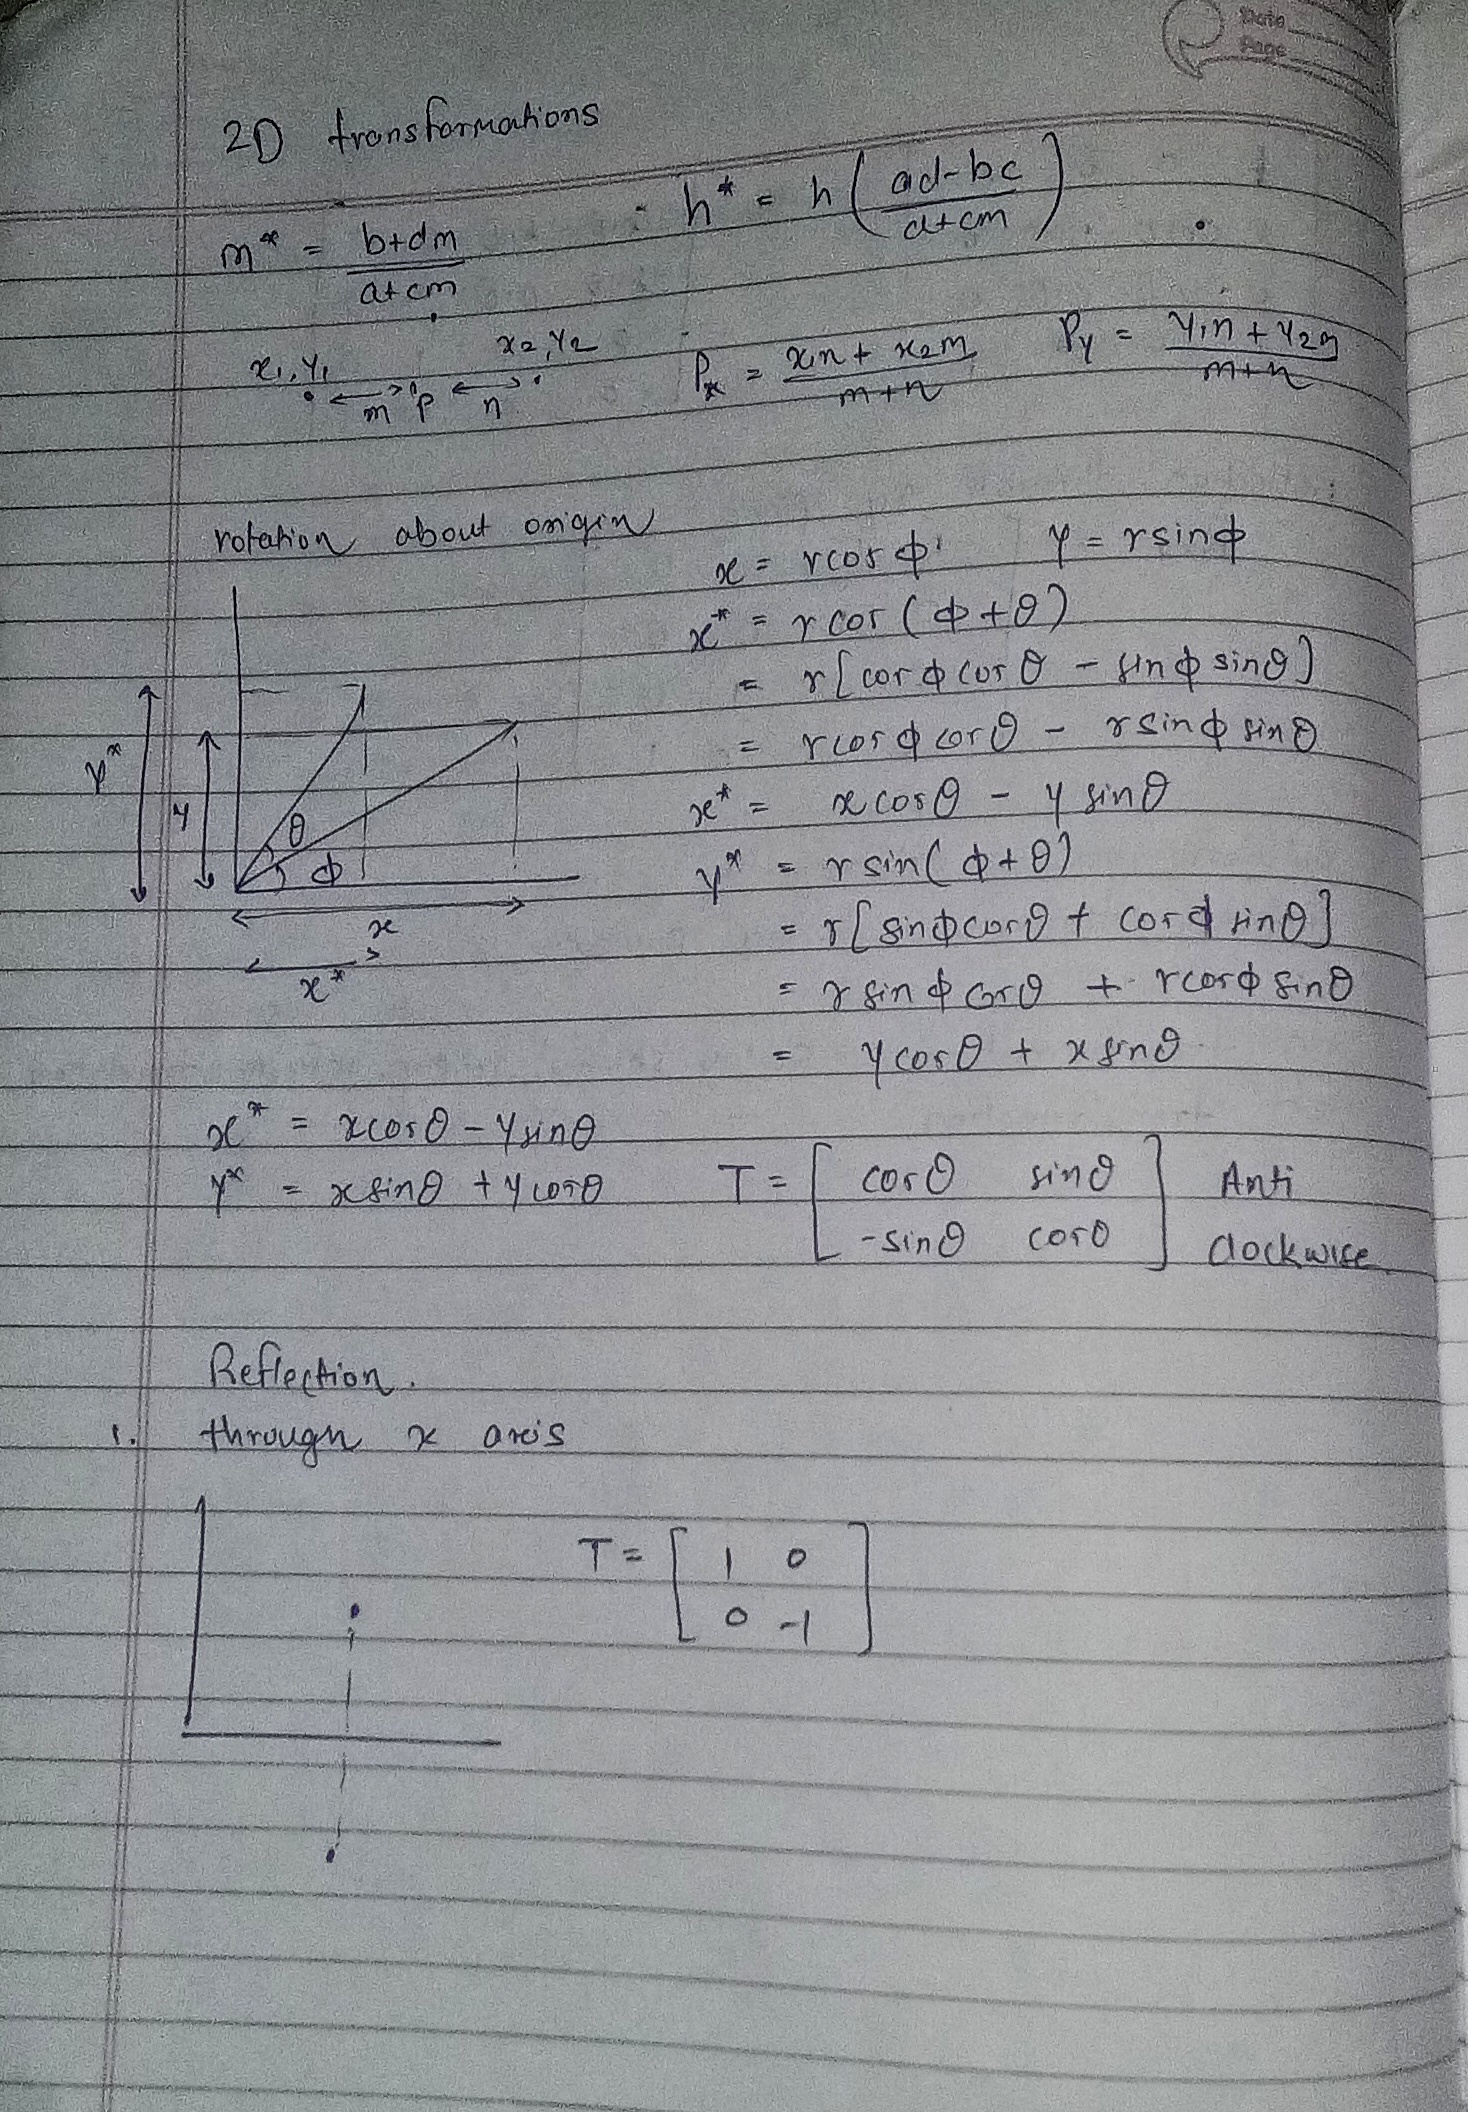 Date
Page
2D transformations
m* = (b+dm)/(a+cm)   h* = h((ad-bc)/(a+cm))
x₁,y₁   x₂,y₂   Pₓ = (x₁n + x₂m)/(m+n)   Pᵧ = (y₁n + y₂m)/(m+n)
m   P   n
rotation about origin
x = rcosϕ   y = rsinϕ
x* = rcos(ϕ+θ)
= r[cosϕcosθ - sinϕsinθ]
= rcosϕcosθ - rsinϕsinθ
x* = xcosθ - ysinθ
y* = rsin(ϕ+θ)
= r[sinϕcosθ + cosϕsinθ]
= rsinϕcosθ + rcosϕsinθ
= ycosθ + xsinθ
y*
y
θ
ϕ
x
x*
x* = xcosθ - ysinθ
y* = xsinθ + ycosθ   T = [ cosθ   sinθ ]   Anti
[ -sinθ   cosθ ]   clockwise
Reflection.
1. through x axis
T = [ 1   0 ]
[ 0   -1 ]